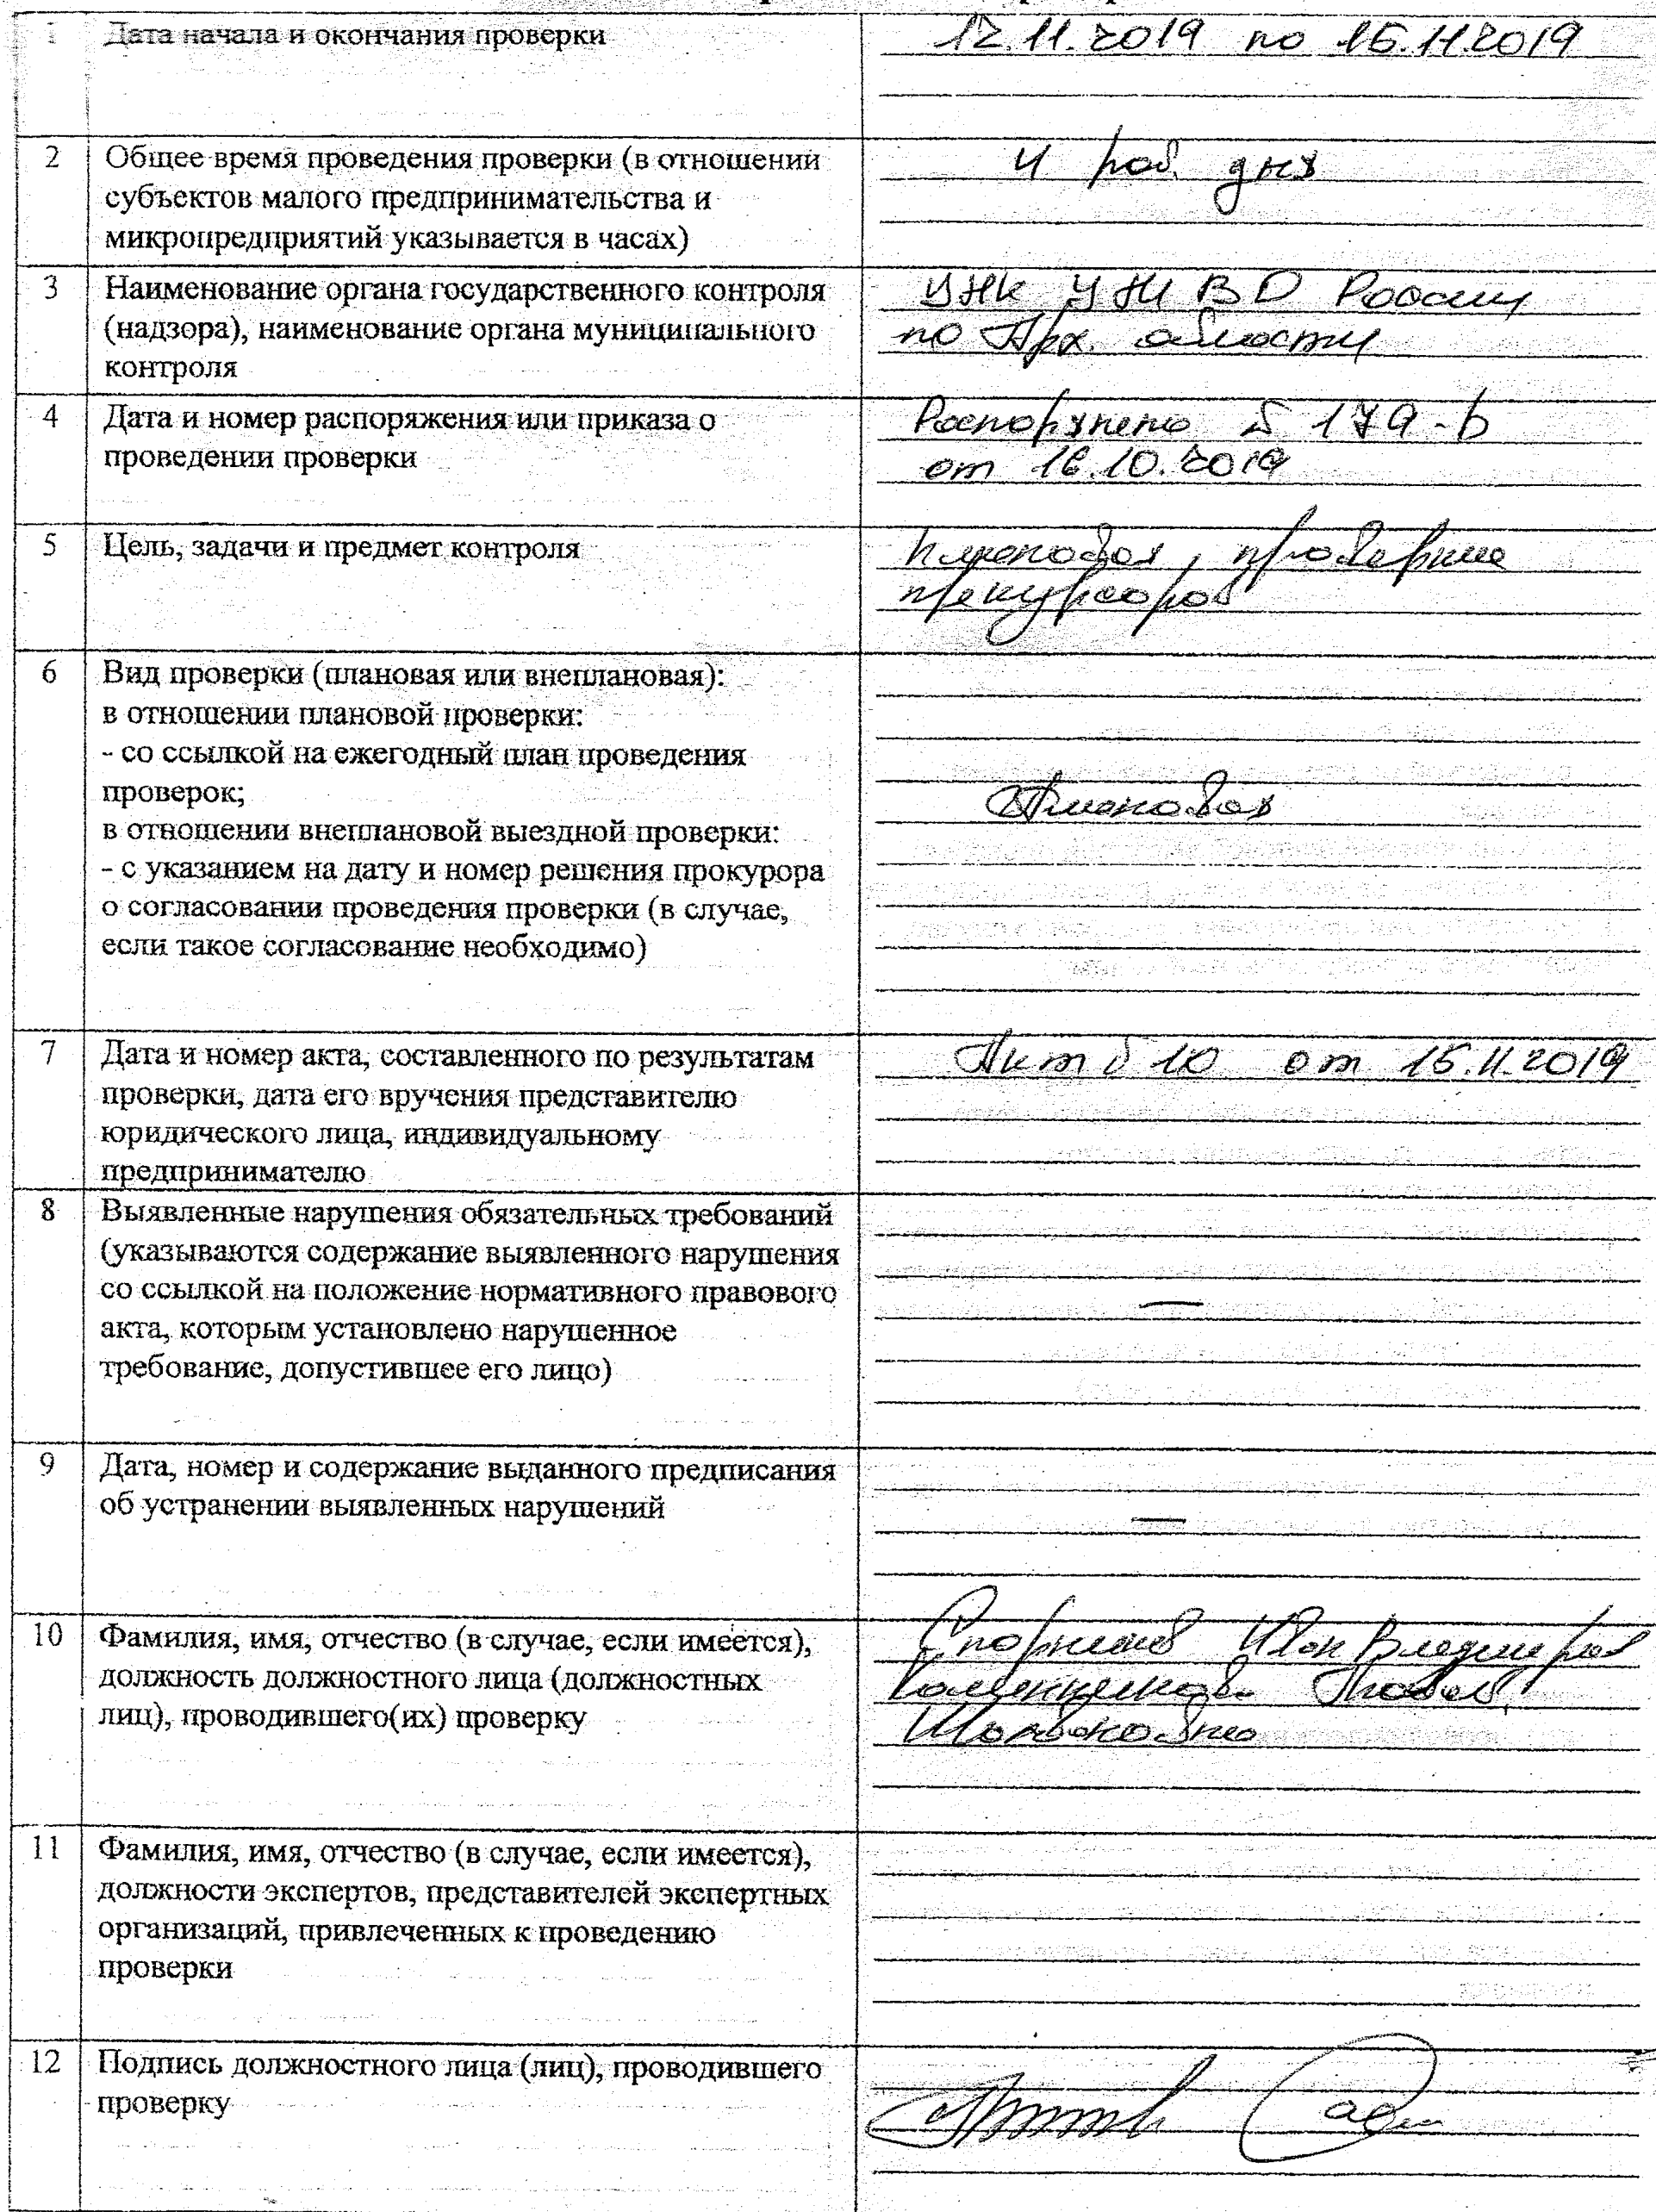 1 Дата начала и окончания проверки 12.11.2019 по 15.11.2019
2 Общее время проведения проверки (в отношений 4 раб. дня
субъектов малого предпринимательства и
микропредприятий указывается в часах)
3 Наименование органа государственного контроля УНК УМВД России
(надзора), наименование органа муниципального по Арх. области
контроля
4 Дата и номер распоряжения или приказа о Распоряжено
проведении проверки от 16.10.2019
5 Цель, задачи и предмет контроля Плановая, проверка
прекурсоров
6 Вид проверки (плановая или внеплановая):
в отношении плановой проверки:
- со ссылкой на ежегодный план проведения
проверок; Плановая
в отношении внеплановой выездной проверки:
- с указанием на дату и номер решения прокурора
о согласовании проведения проверки (в случае,
если такое согласование необходимо)
7 Дата и номер акта, составленного по результатам Акт 10 от 15.11.2019
проверки, дата его вручения представителю
юридического лица, индивидуальному
предпринимателю
8 Выявленные нарушения обязательных требований
(указываются содержание выявленного нарушения
со ссылкой на положение нормативного правового —
акта, которым установлено нарушенное
требование, допустившее его лицо)
9 Дата, номер и содержание выданного предписания
об устранении выявленных нарушений —
10 Фамилия, имя, отчество (в случае, если имеется),
должность должностного лица (должностных
лиц), проводившего(их) проверку
11 Фамилия, имя, отчество (в случае, если имеется),
должности экспертов, представителей экспертных
организаций, привлеченных к проведению
проверки
12 Подпись должностного лица (лиц), проводившего
проверку